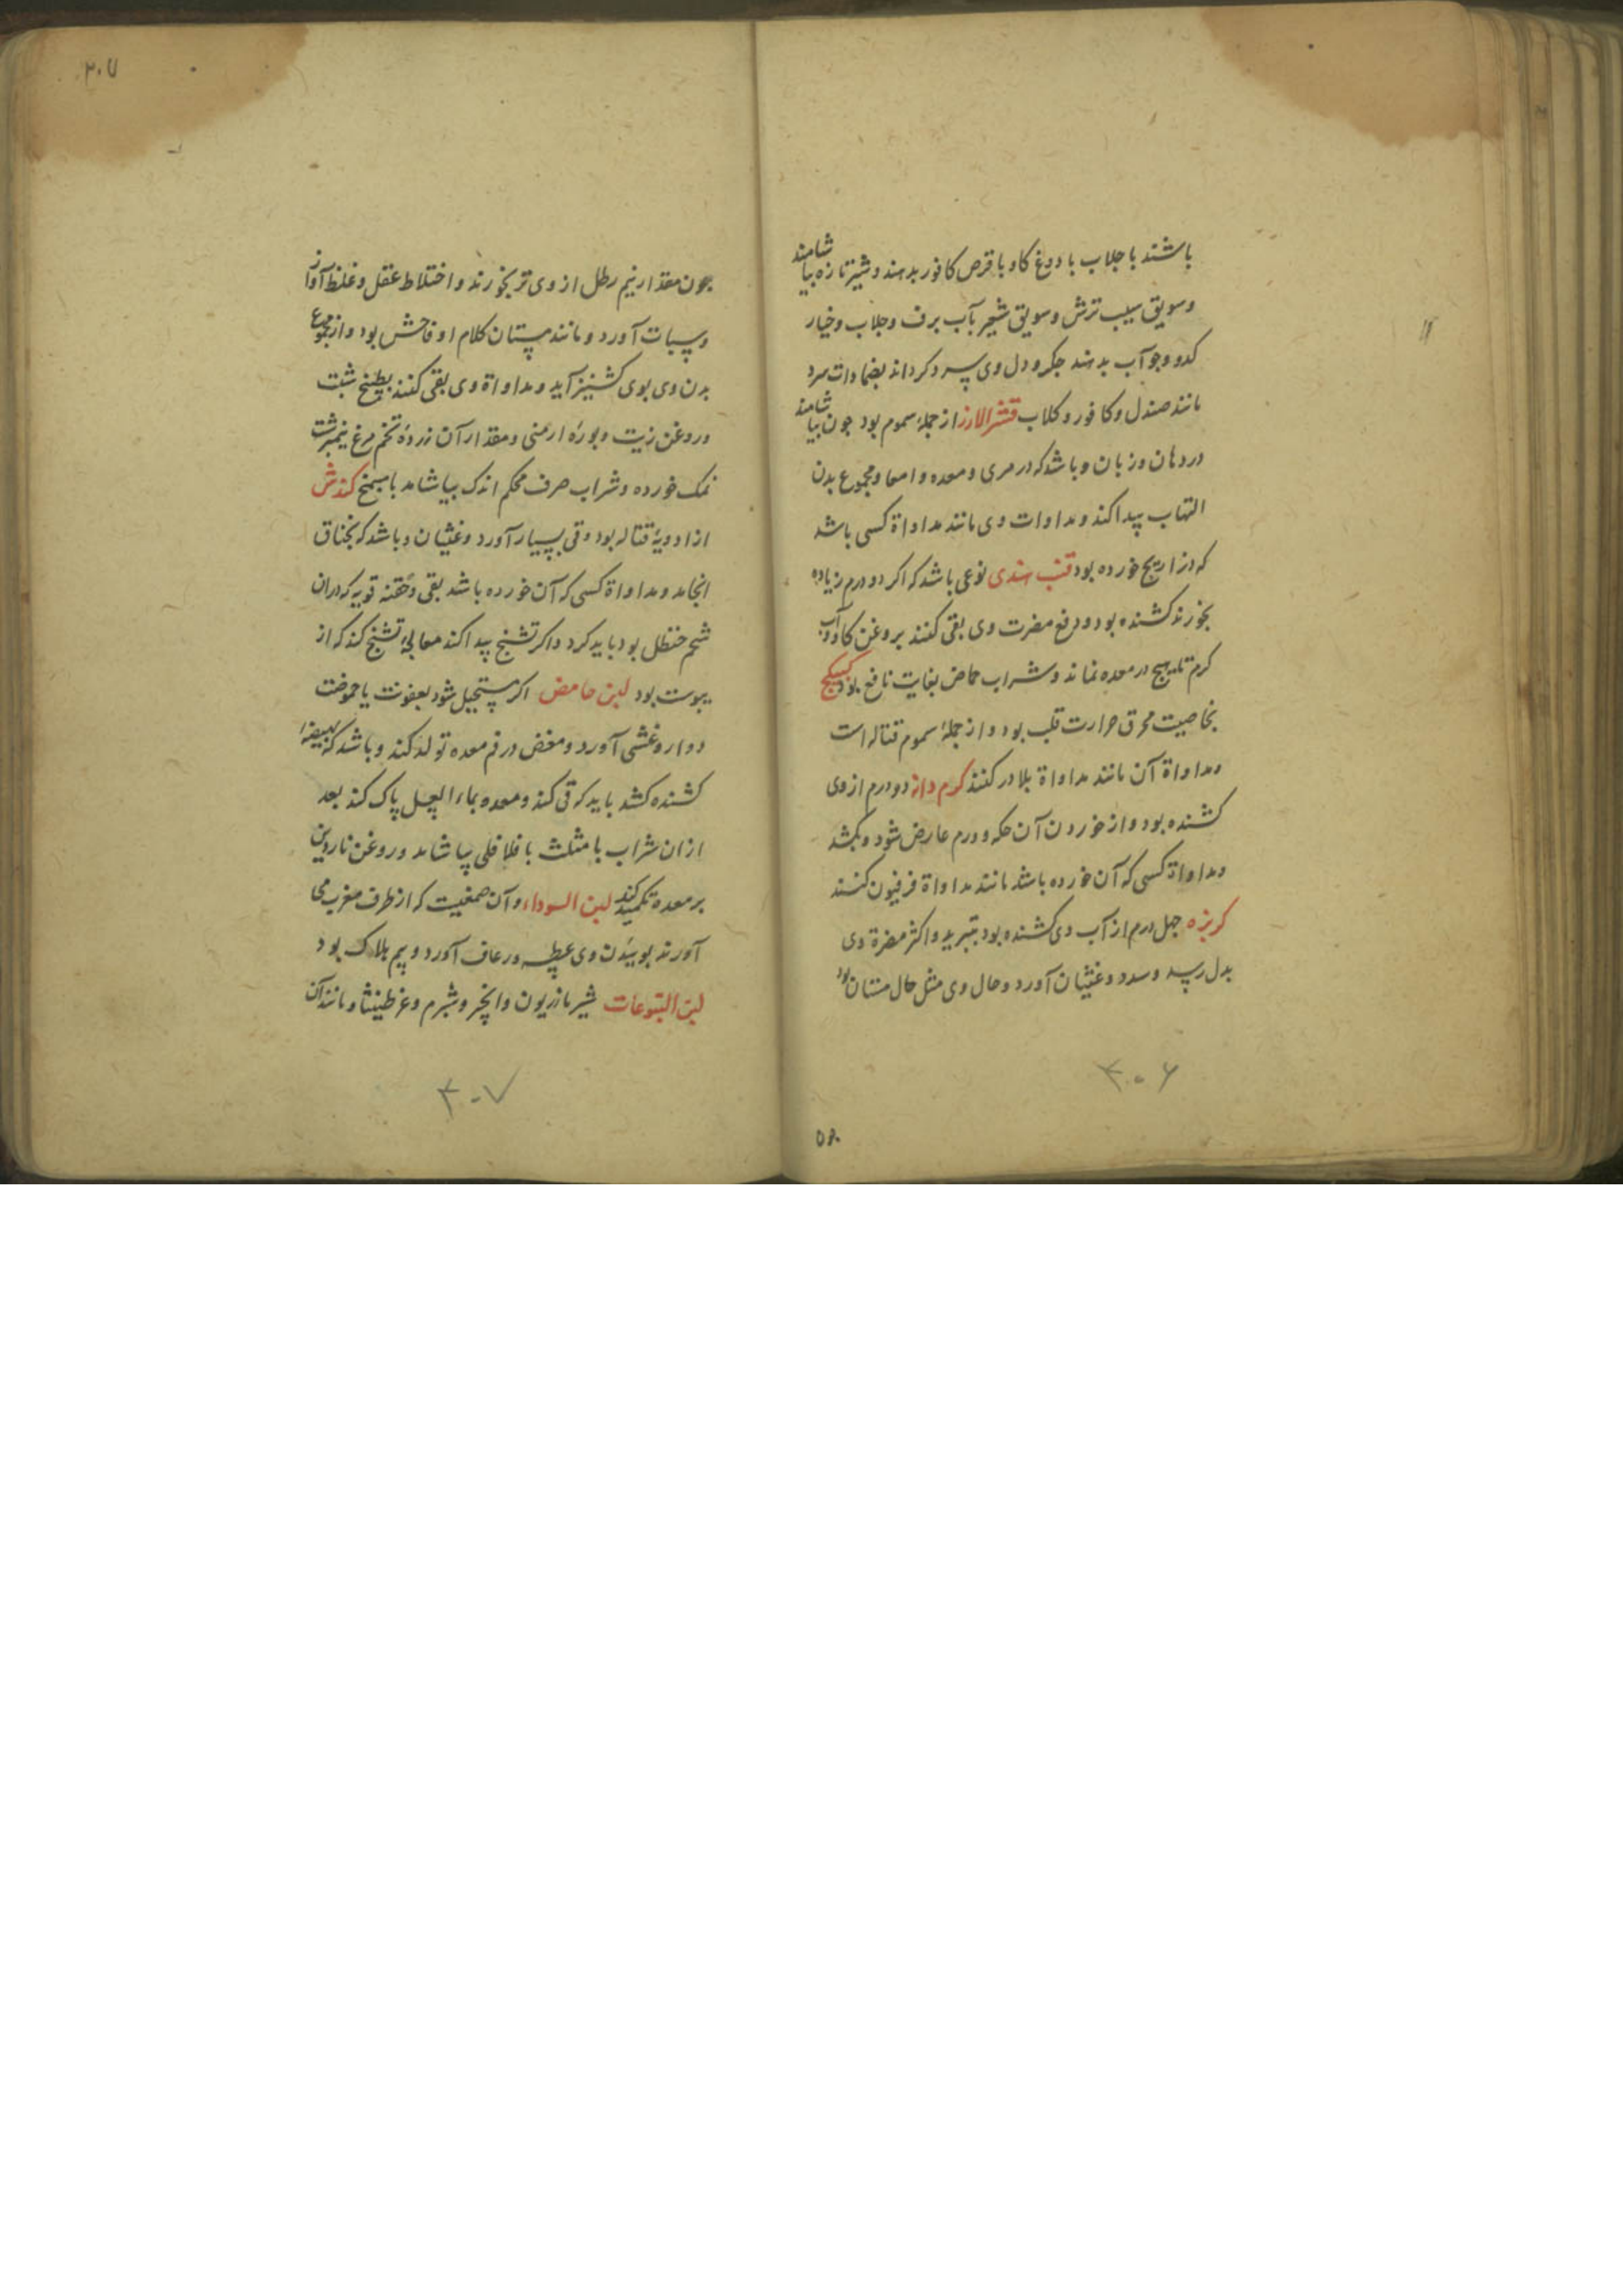 باشند با جلاب با دوغ کاو با قرص کافور بدهند و شیر تازه بیاشامند
وسویق سیب ترش وسویق شعیر بآب برف وجلاب وخیار
کدو وجو آب بدهند جکر و دل وی سرد کرداند بضمادات سرد
مانند صندل وکافور وکلاب قشر الارز از جملهٔ سموم بود جون بیاشامند
در دهان وزبان وباشد که در مری ومعده وامعا ومجموع بدن
التهاب پیدا کند ومداوات وی مانند مداواة کسی باشد
که ذراریح خورده بود قنب هندی نوعی باشد که اکر دو درم زیاده
بخورند کشنده بود ودفع مضرت وی بقی کنند بروغن کاو وآب
کرم تا هیچ در معده نماند وشراب حماض بغایت نافع بود کبیکج
بخاصیت محرق حرارت قلب بود واز جملهٔ سموم قتاله است
ومداواة آن مانند مداواة بلادر کنند کرم دانه دو درم از وی
کشنده بود واز خوردن آن حکه وورم عارض شود وبکشد
ومداواة کسی که آن خورده باشد مانند مداواة فرفیون کنند
کزبزه جهل درم از آب وی کشنده بود بتبرید واکثر مضرة وی
بدل رسد وسدد وغثیان آورد وحال وی مثل حال مستان بود
۳۰۶
۳۰۷
جون مقدار نیم رطل از وی تر بخورند واختلاط عقل وغلظ آواز
وسبات آورد ومانند مستان کلام او فاحش بود واز مجموع
بدن وی بوی کشنیز آید ومداواة وی بقی کنند بطبیخ شبت
وروغن زیت وبورهٔ ارمنی ومقدار آن زردهٔ تخم مرغ نیمبرشت
نمک خورده وشراب صرف محکم اندک بیاشامد با میبختج کندش
از ادویهٔ قتاله بود وقی بسیار آورد وغثیان وباشد که بخناق
انجامد ومداواة کسی که آن خورده باشد بقی وحقنه قویه که در ان
شحم حنظل بود باید کرد واکر تشنج پیدا کند معالجهٔ تشنج کند که از
یبوست بود لبن حامض اکر مستحیل شود بعفونت یا حموضت
دوار وغشی آورد ومغص در فم معده تولد کند وباشد که بهیضهٔ
کشنده کشد باید که قی کند ومعده بماء العسل پاک کند بعد
از ان شراب با مثلث با فلافلی بیاشامد وروغن ناردین
بر معده تکمید کند لبن السوداء وآن صمغیست که از طرف مغرب می
آورند بوییدن وی عطسه ورعاف آورد وبیم هلاک بود
لبن الیتوعات شیر مازریون وانجیر وشبرم وعرطنیثا ومانند آن
۳۰۷